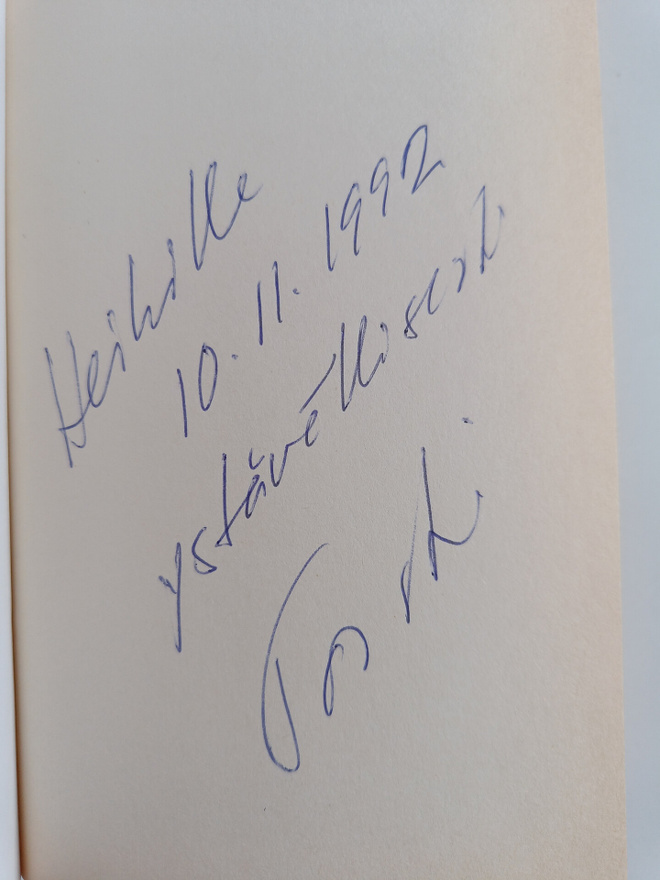 Heikille
10.11.1992
ystävällisesti